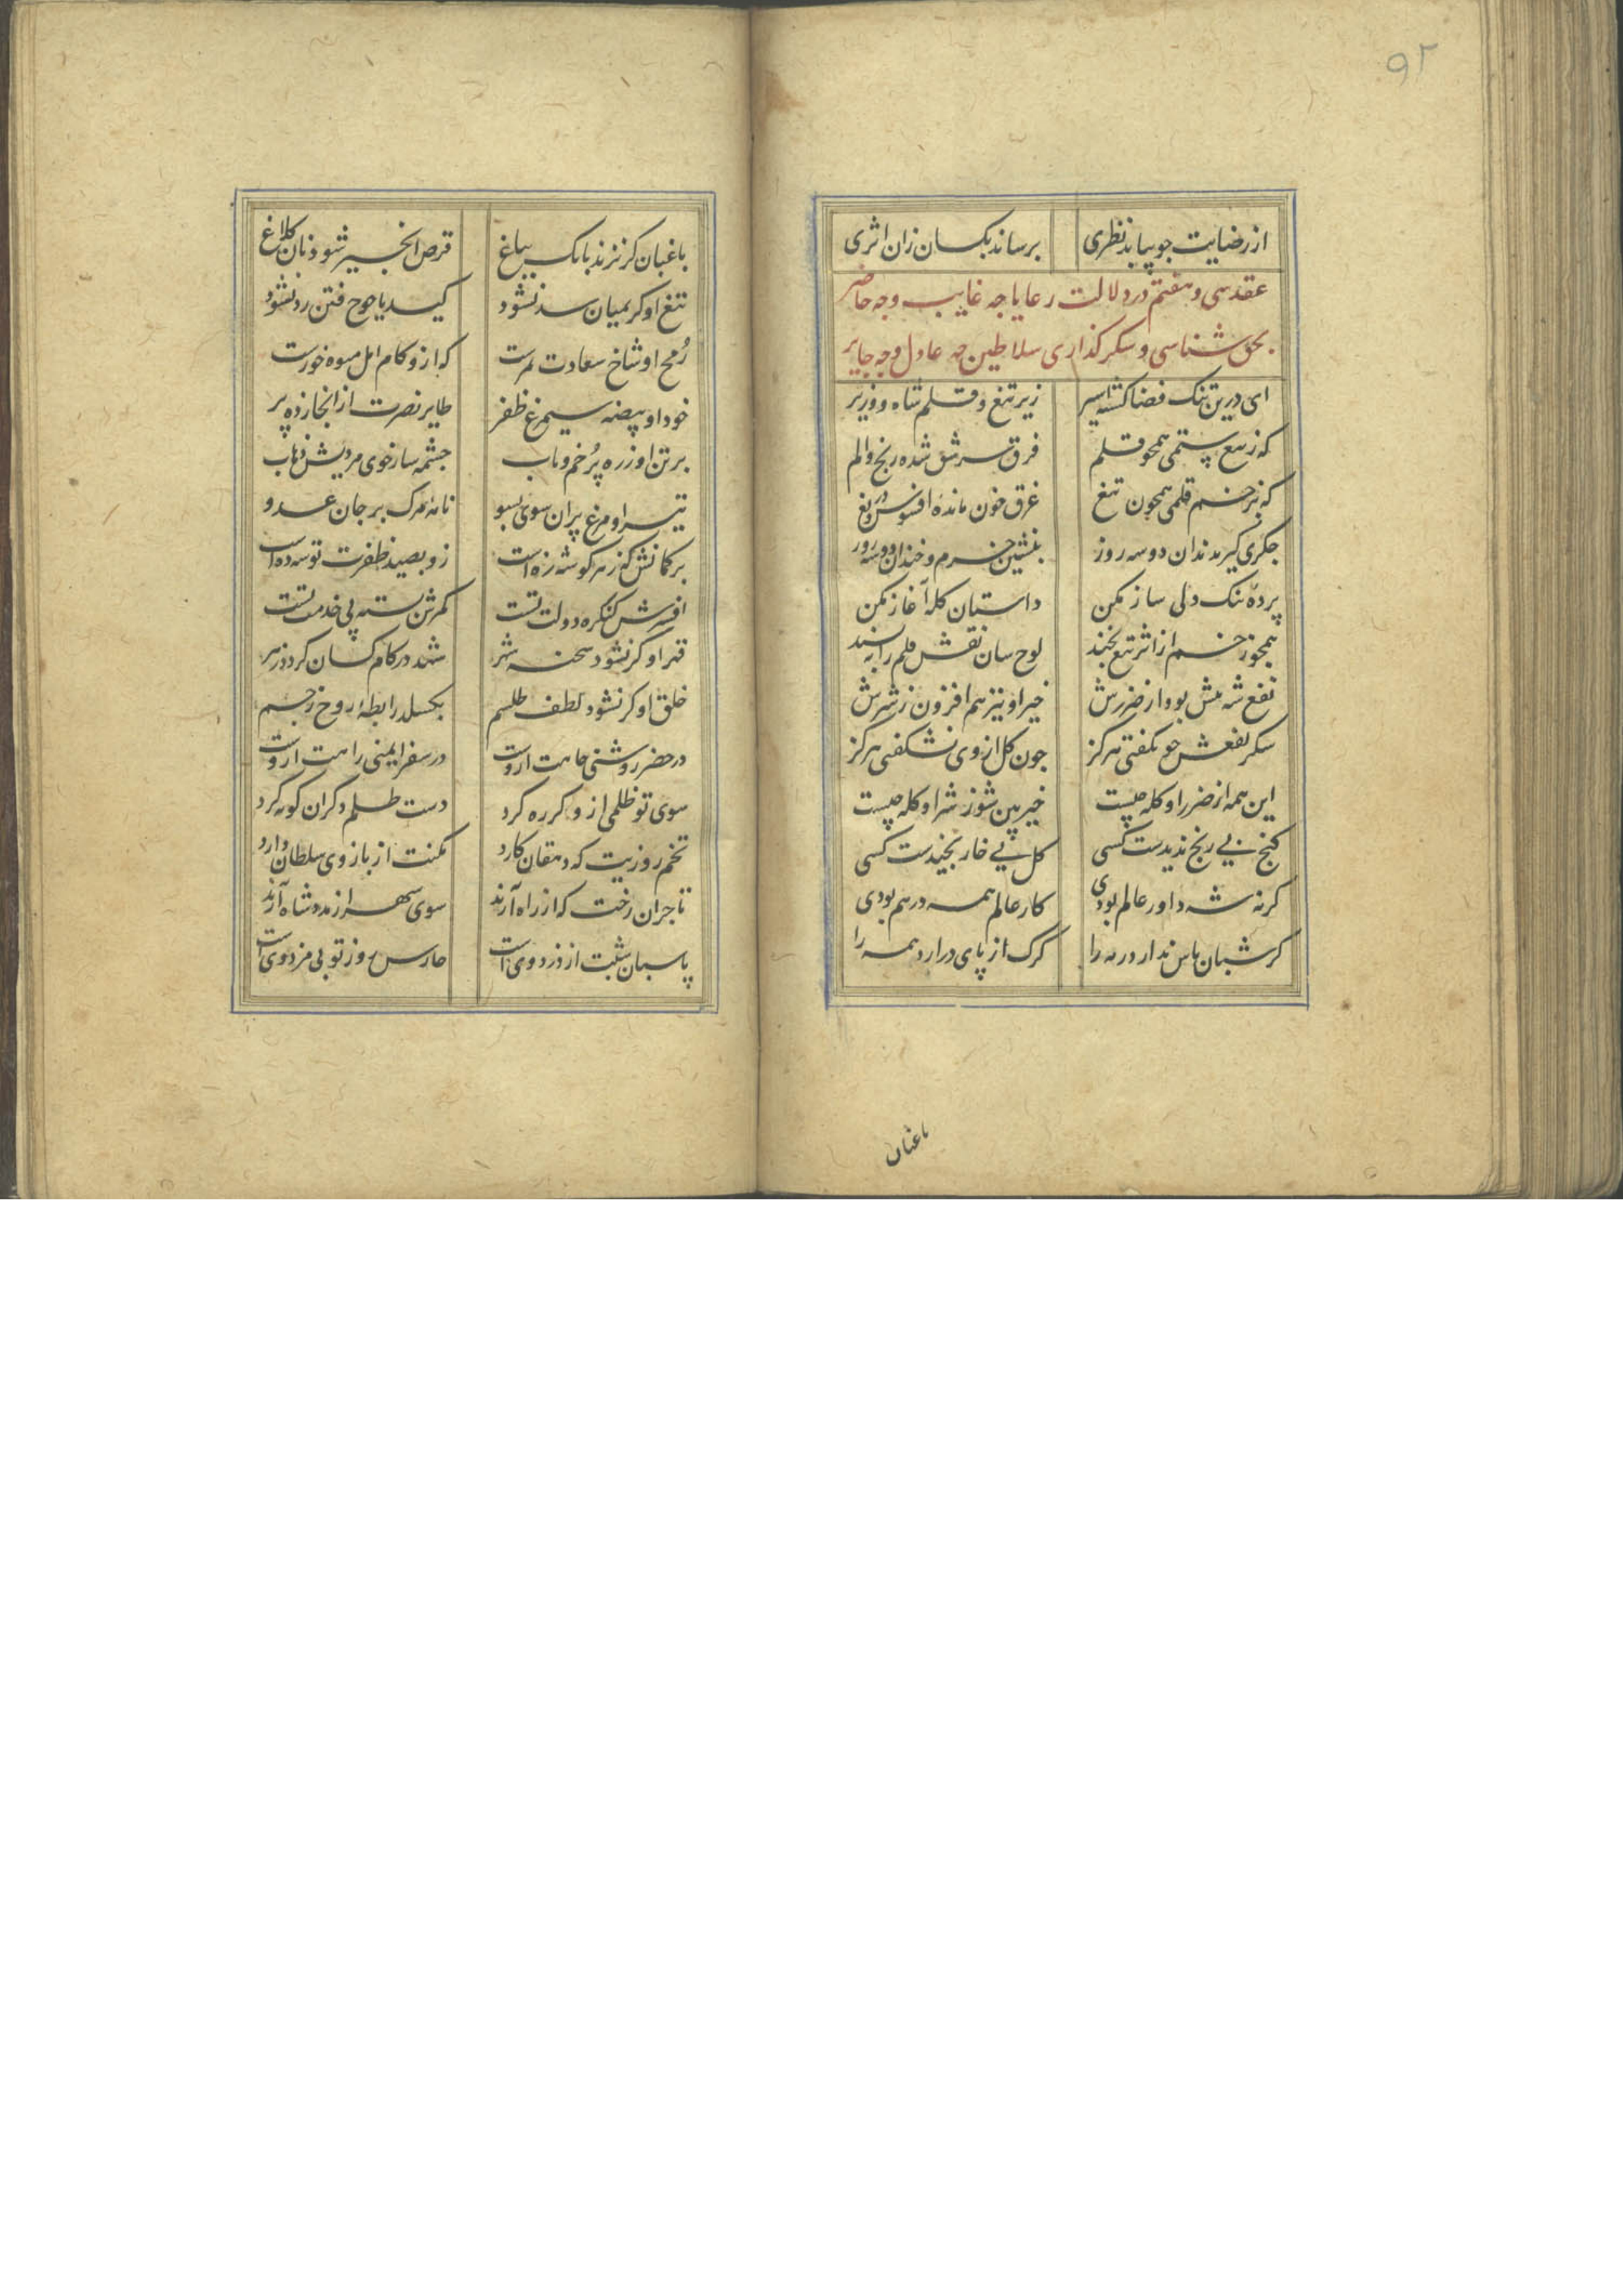 ۹۲
از رضایت جو بیابد نظری برساند بکسان زان اثری
عقد سی و هفتم در دلالت رعایا چه غایب وچه حاضر
بحق شناسی و شکر کذاری سلاطین چه عادل وچه جایر
ای درین تنک فضا کشته اسیر زیر تیغ و قلم شاه و وزیر
که ز تیغ ستمی همچو قلم فرق سر شق شده رنج و الم
که بزخم قلمی همچون تیغ غرق خون مانده افسوس و دریغ
جکری کیر بدندان دوسه روز بنشین خرم و خندان دوسه روز
پرده تنک دلی ساز مکن داستان کله آغاز مکن
همچو زخم از اثر تیغ بخند لوح سان نقش قلم را بپسند
نفع شه بیش بود از ضررش خیر او نیز هم افزون ز شرش
شکر نفعش چو نکفتی هرکز چون کل از وی نشکفتی هرکز
این همه از ضرر او کله چیست خیر بین شو ز شر او کله چیست
کنج بی رنج ندیدست کسی کل بی خار نچیدست کسی
کر نه شه داور عالم بودی کار عالم همه درهم بودی
کر شبان پاس ندارد رمه را کرک از پای درارد همه را
باغبان
باغبان کر نزند بانک بباغ قرص انجیر شود نان کلاغ
تیغ او کر بمیان سد نشود کید یاجوج فتن رد نشود
رُمح او شاخ سعادت ثمرست که ازو کام امل میوه خورست
خود او بیضه سیمرغ ظفر طایر نصرت از انجا زده پر
بر تن او زره پُر خم و تاب چشمه سار خوی مردیش ذهاب
تیر او مرغ پران سوی بسو نامه مرک بر جان عدو
بر کمانش که ز هر کوشه زه است زو بصید ظفرت توسه ده است
افسرش کنکره دولت تست کمرش بسته پی خدمت تست
قهر او کر نشود شحنه شهر شهد در کام کسان کردد زهر
خلق او کر نشود لطف طلسم بکسلد رابطه روح ز جسم
در حضر روشنی جاهت ازوست در سفر ایمنی راهت ازوست
سوی تو ظلمی ازو کر ره کرد دست ظلم دکران کوته کرد
تخم روزیت که دهقان کارد مکنت از بازوی سلطان دارد
تاجران رخت که از راه آرند سوی شهر از مدد شاه آرند
پاسبان شبت از دزد وی است حارس روز تو بی مزد وی است